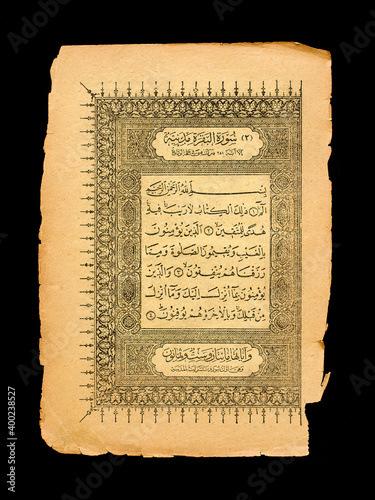 (٢) سُورَةُ البَقَرَةِ مَدَنِيَّة
بِسْمِ اللهِ الرَّحْمٰنِ الرَّحِيمِ
الٓمٓ ﴿١﴾ ذٰلِكَ الْكِتَابُ لَا رَيْبَ فِيهِ
هُدًى لِلْمُتَّقِينَ ﴿٢﴾ الَّذِينَ يُؤْمِنُونَ
بِالْغَيْبِ وَيُقِيمُونَ الصَّلٰوةَ وَمِمَّا
رَزَقْنَاهُمْ يُنْفِقُونَ ﴿٣﴾ وَالَّذِينَ
يُؤْمِنُونَ بِمَا أُنْزِلَ إِلَيْكَ وَمَا أُنْزِلَ
مِنْ قَبْلِكَ وَبِالْآخِرَةِ هُمْ يُوقِنُونَ ﴿٤﴾
وآياتها مائتان وست وثمانون
Adobe Stock | #400238527